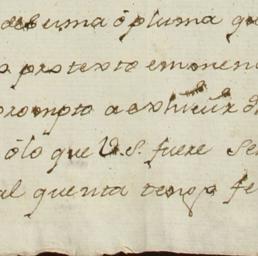 de suma ó pluma qu
protexto em
prompto a exhivir
ólo que V.S. fuere se
al quenta tengo fe